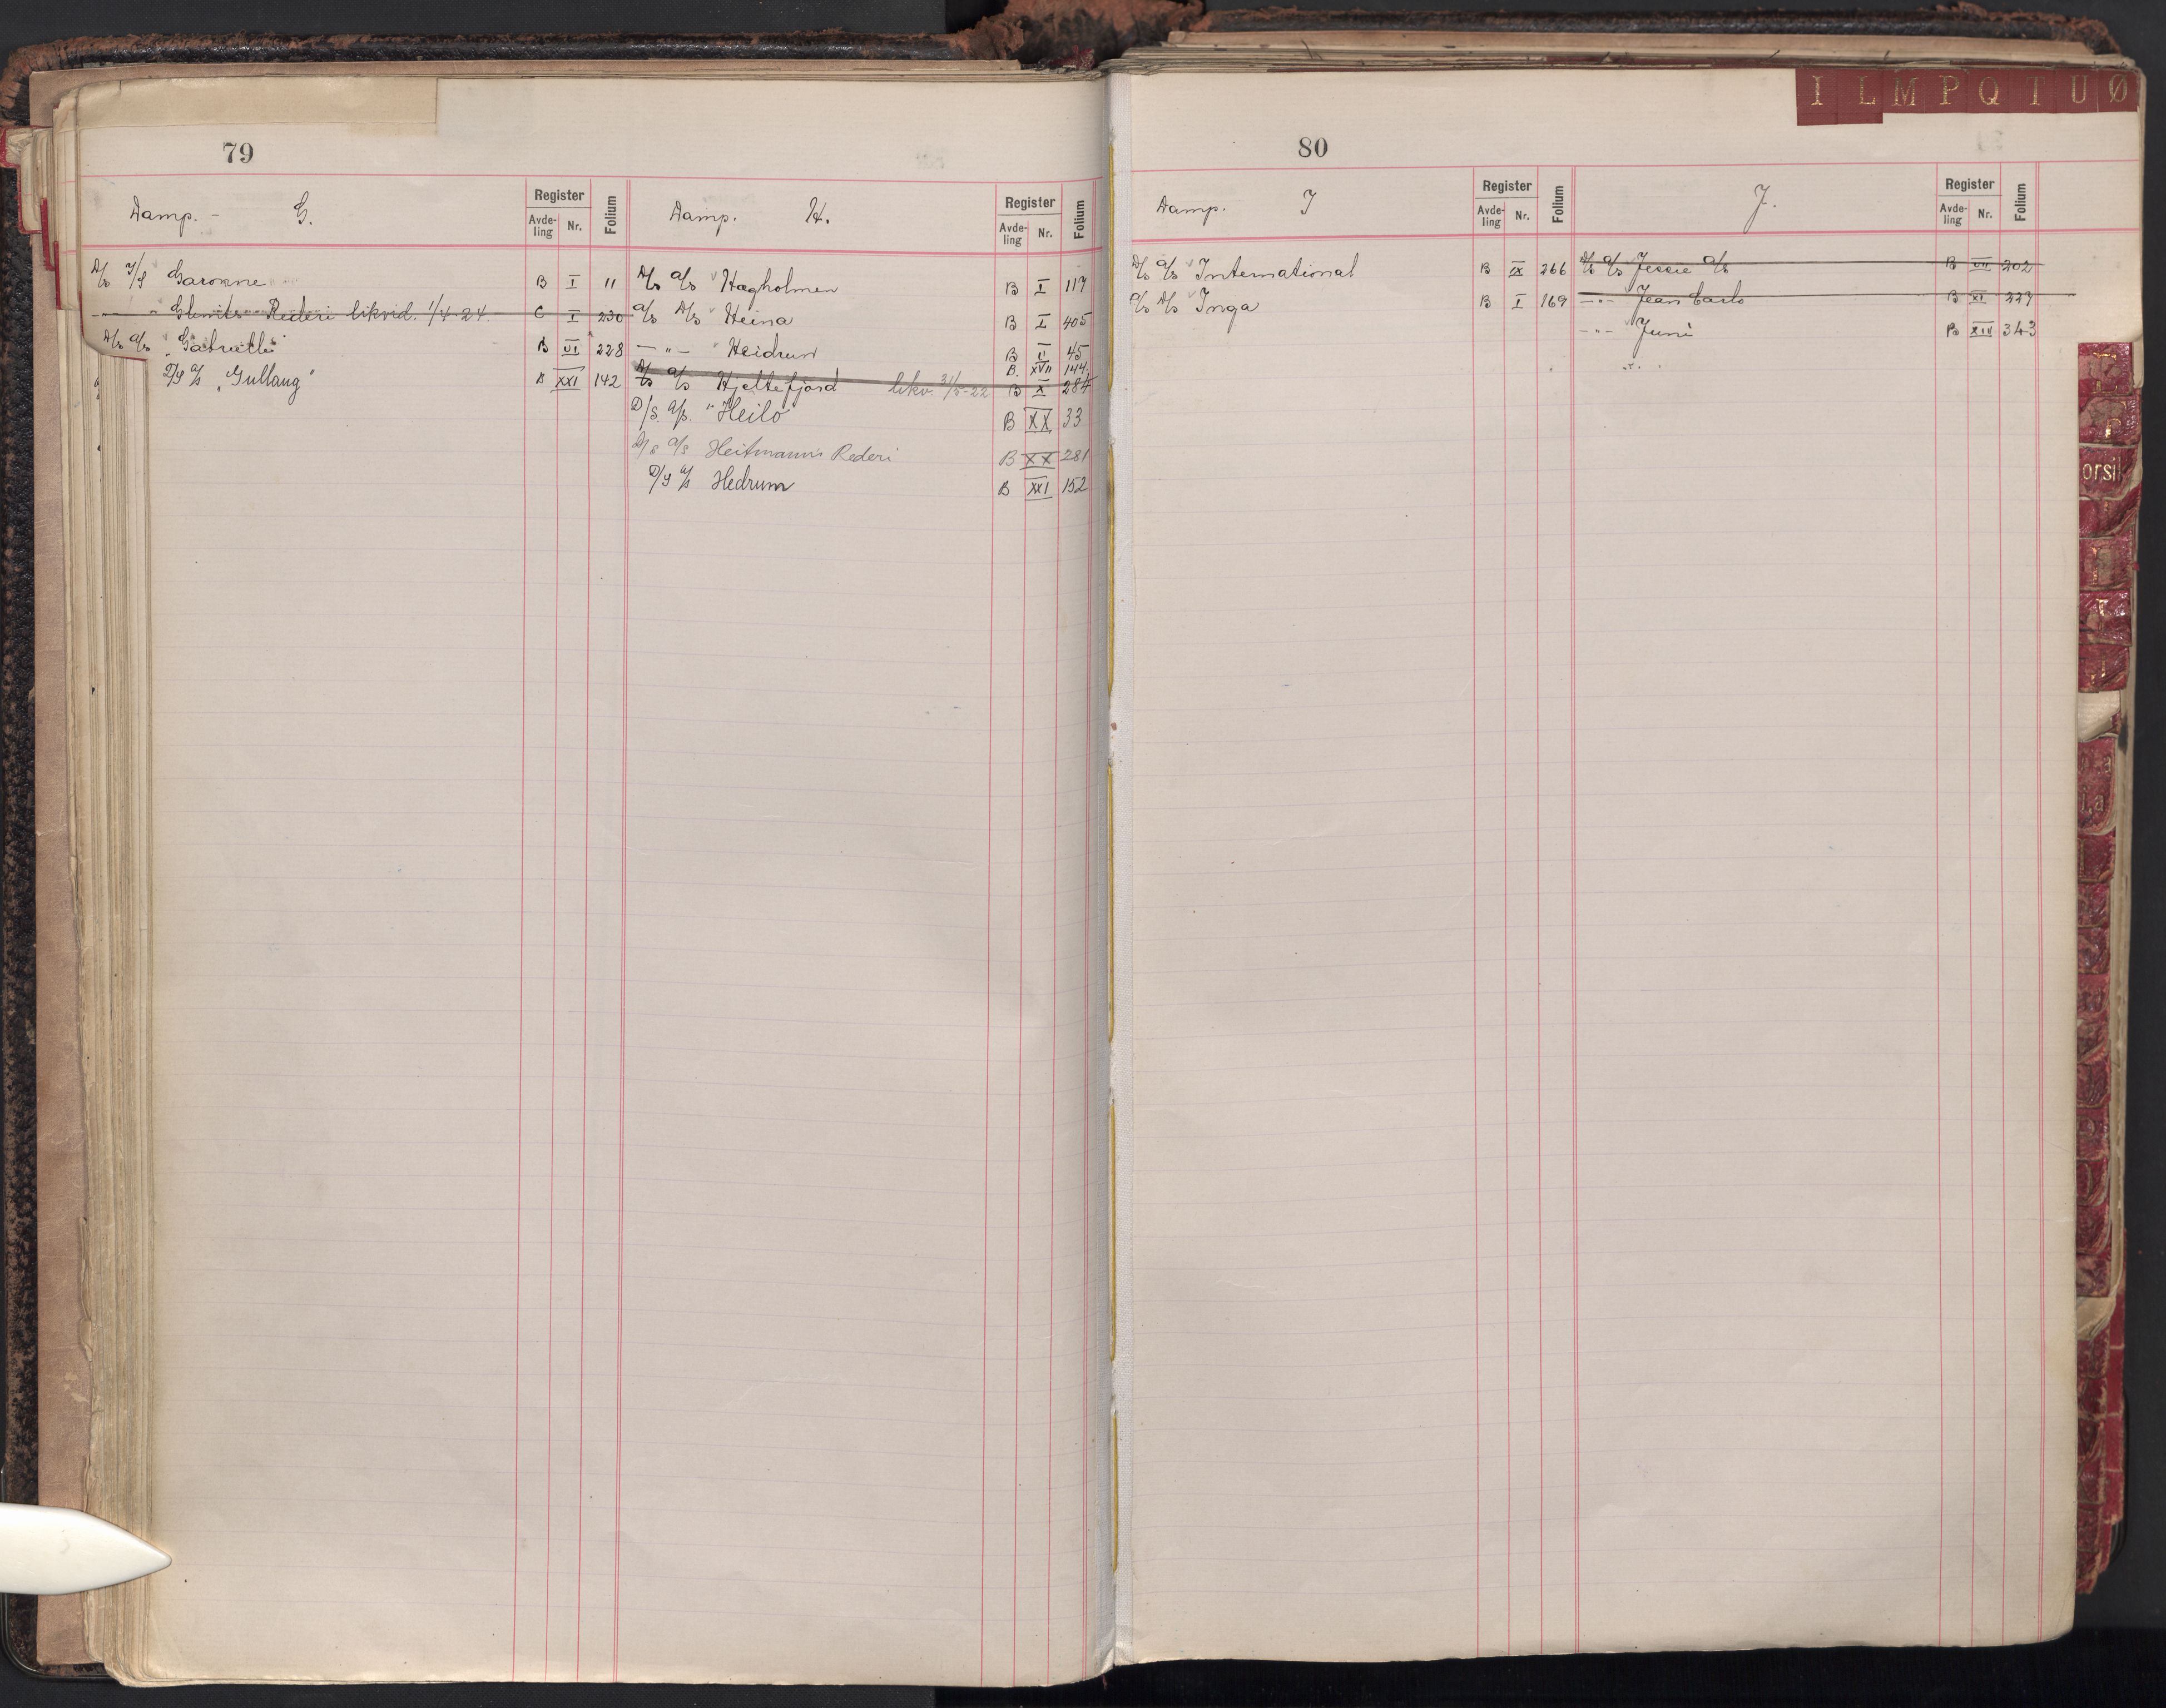 I L M P Q T U Ø
79
Damp. - G.
Register
Avde-
ling
Nr.
Folium
D/s I/S Garonne B I 11
— " — Rederi likvid. 1/4-24 C I 230
D/s A/s "Gabrielle" B VI 228
D/S A/s "Gullaug" B XXI 142
Damp. H.
Register
Avde-
ling
Nr.
Folium
D/s A/s "Hægholmen B I 117
A/s D/s "Heina B I 405
— " — "Heidrun B II 45
B. XVII 144.
D/s A/s Hjeltefjord likv. 31/5-22 B X 284
D/S. A/s. "Heilo B XX 33
D/s A/s Heitmanns Rederi B XX 281
D/S A/s Hedrum B XXI 152
80
Damp. I
Register
Avde-
ling
Nr.
Folium
D/s A/s "International B IX 266
A/s D/s "Inga B I 169
J.
Register
Avde-
ling
Nr.
Folium
D/s A/s Jessie A/s B VII 202
— " — "Jean Carlo B XI 227
— " — "Juni B XIV 343
orsik